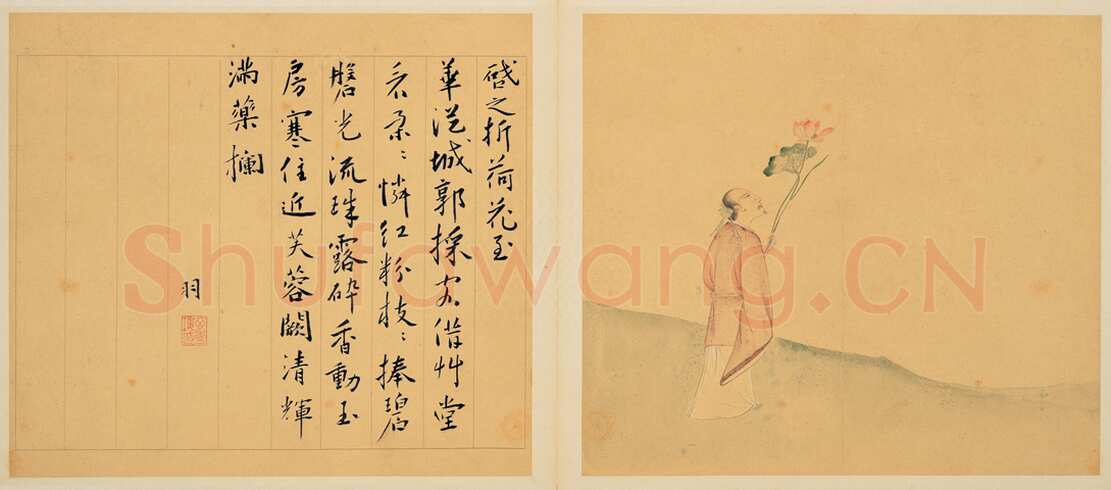 啟之折荷花至
華從城郭採借艸堂
看朵〻憐紅粉枝〻捧碧
盤光流珠露碎香動玉
房寒住近芙蓉闕清輝
滿藥欄
羽
Shufawang.CN